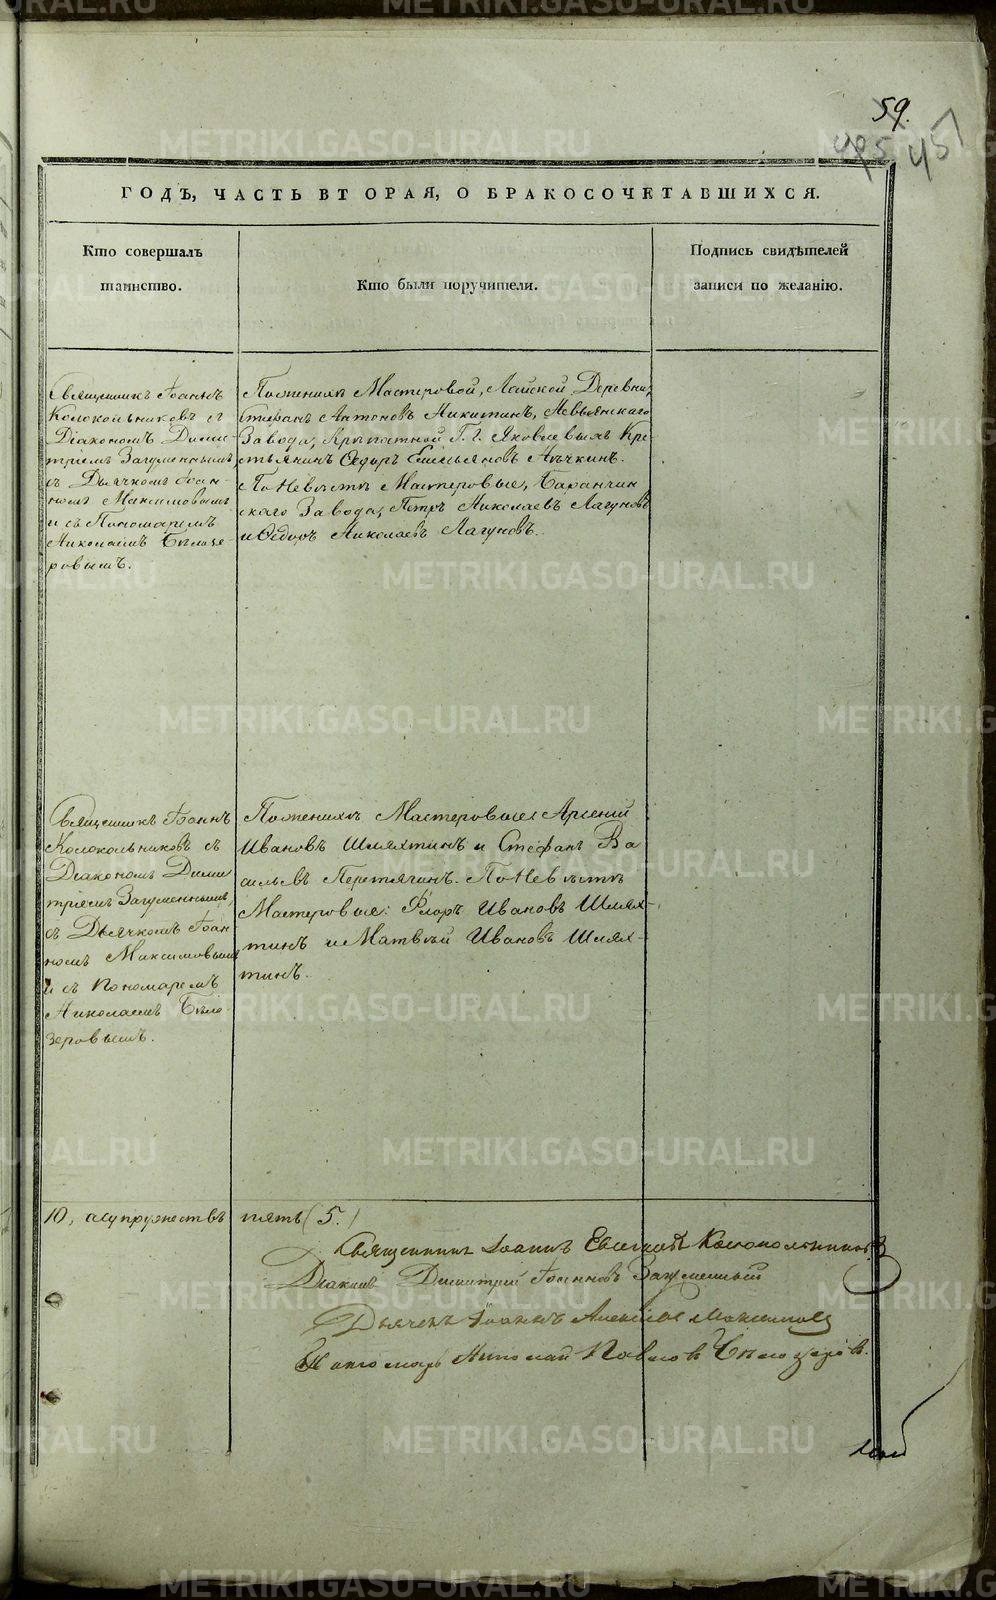 59.
45
ГОДЪ, ЧАСТЬ ВТОРАЯ, О БРАКОСОЧЕТАВШИХСЯ.
Кто совершалъ
таинство.
Кто были поручители.
Подпись свидѣтелей
записи по желанію.
Священникъ Іоаннъ
Колокольниковъ съ
Діакономъ Дими-
тріемъ Загуменнымъ
съ Дьячкомъ Іоан-
номъ Максимовымъ
и съ Пономаремъ
Николаемъ Бѣлозе-
ровымъ.
По женихѣ Мастеровой, Лайской Деревни,
Стефанъ Антоновъ Никитинъ, Невьянскаго
Завода, Крѣпостной Г. Г. Яковлевыхъ Кре-
стьянинъ Ѳедоръ Емельяновъ Лучкинъ.
По Невѣстѣ Мастеровые, Баранчин
скаго Завода, Петръ Николаевъ Лагуновъ
и Ѳедоръ Николаевъ Лагуновъ.
Священникъ Іоаннъ
Колокольниковъ съ
Діакономъ Дими
тріемъ Загуменнымъ,
съ Дьячкомъ Іоан
номъ Максимовымъ
и съ Пономаремъ
Николаемъ Бѣло
зеровымъ.
По женихѣ Мастеровые Арсеній
Ивановъ Шляхтинъ и Стефанъ Ва
сильевъ Перетячинъ. По Невѣстѣ
Мастеровые: Флоръ Ивановъ Шлях-
тинъ и Матвѣй Ивановъ Шлях-
тинъ.
10, а супружествъ пять (5.)
Священникъ Іоаннъ Евгеніевъ Колокольниковъ
Діаконъ Димитрій Іоанновъ Загуменный
Дьячекъ Іоаннъ Алексѣевъ Максимовъ
Пономарь Николай Павловъ Бѣлозеровъ.
METRIKI.GASO-URAL.RU